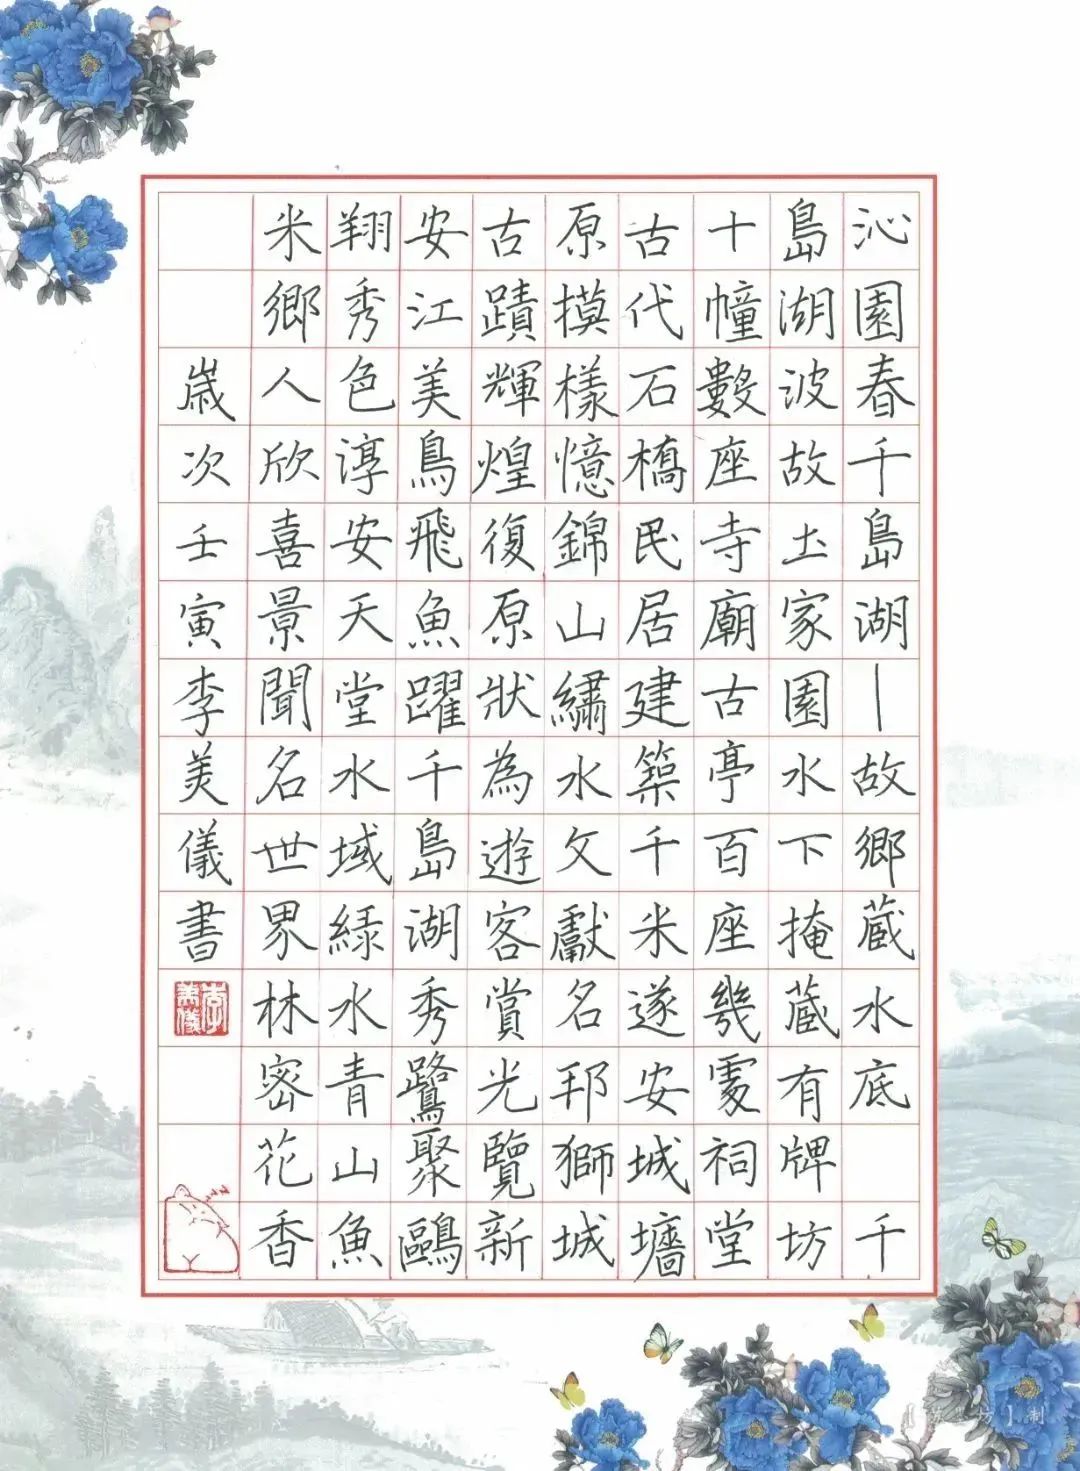 沁園春千島湖—故鄉蔵水底 千
島湖波故土家園水下掩蔵有牌坊
十幢數座寺廟古亭百座幾處祠堂
古代石橋民居建築千米遂安城墻
原摸樣憶錦山繡水文獻名邦獅城
古蹟輝煌復原狀為遊客賞光覽新
安江美鳥飛魚躍千島湖秀鷺聚鷗
翔秀色淳安天堂水域綠水青山魚
米鄉人欣喜景聞名世界林密花香
歲次壬寅李美儀書
李美儀